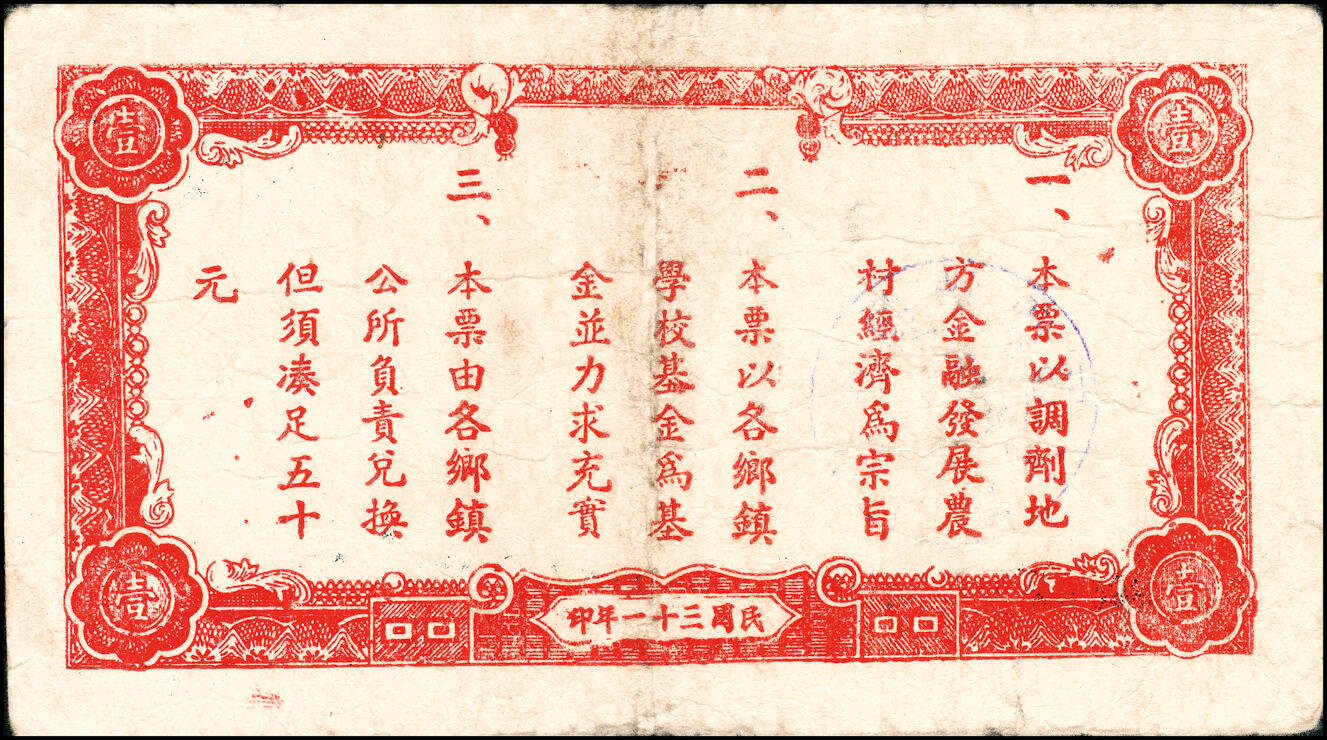 壹
壹
一、
本票以調劑地
方金融發展農
材經濟為宗旨
二、
本票以各鄉鎮
學校基金為基
金並力求充實
三、
本票由各鄉鎮
公所負責兌換
但須凑足五十
元
壹
壹
民國三十一年印